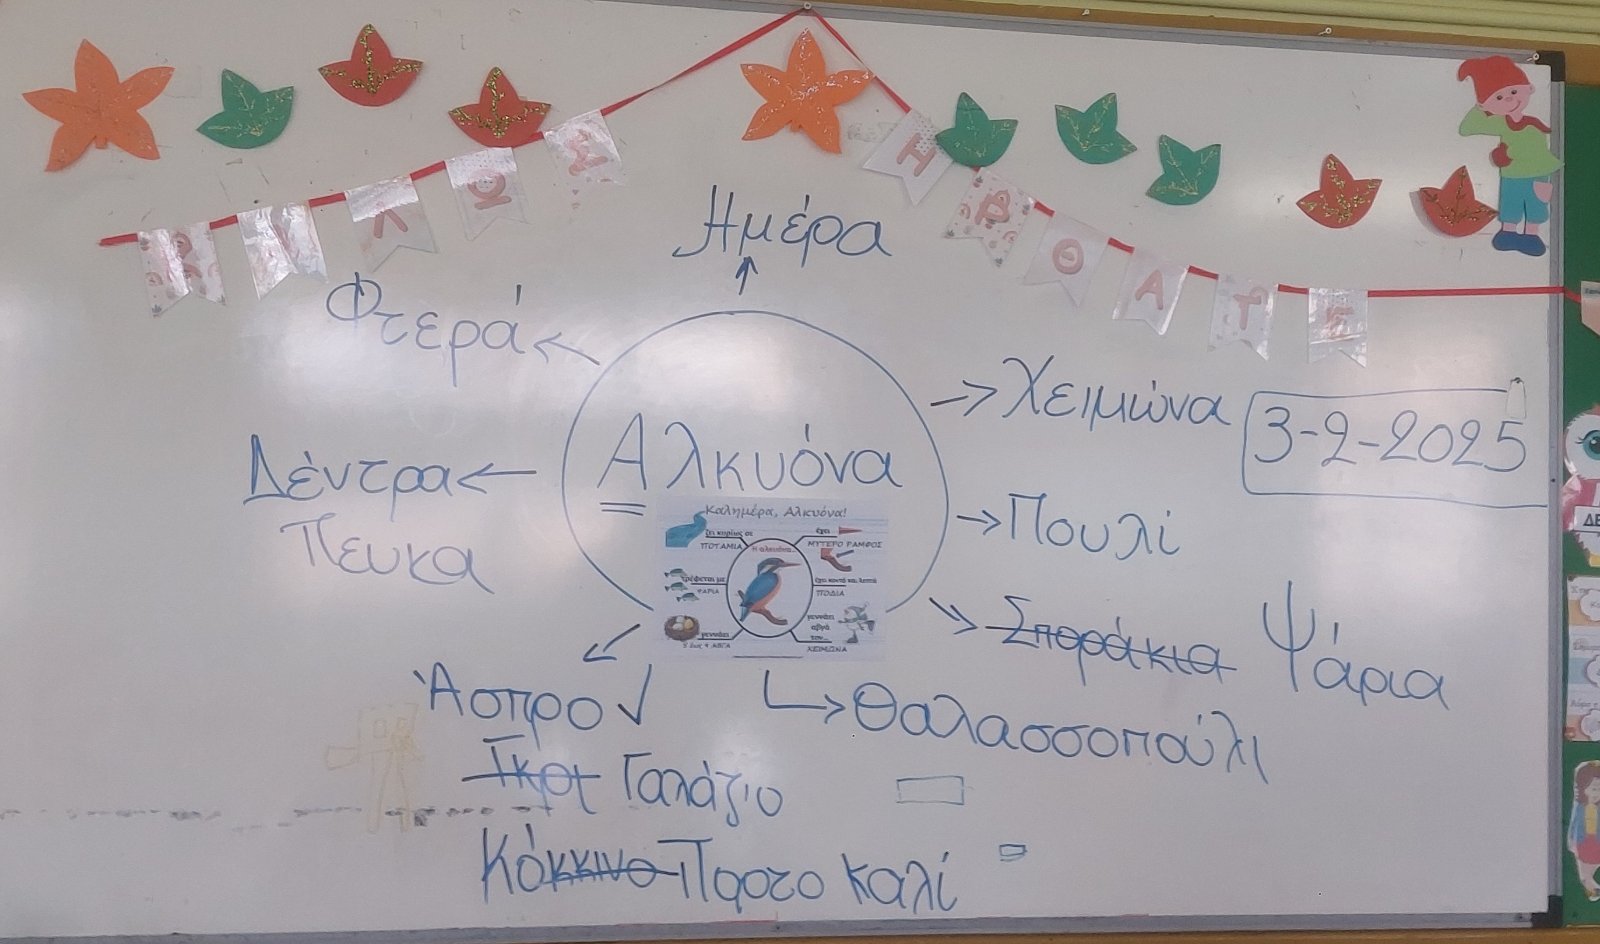 ΚΑΛΩΣ ΗΡΘΑΤΕ
Ημέρα
Φτερά
Χειμώνα
3-2-2025
Αλκυόνα
Δέντρα
Πεύκα
Πουλί
Καλημέρα, Αλκυόνα!
ζει κυρίως σε
ΠΟΤΑΜΙΑ
έχει
ΜΥΤΕΡΟ ΡΑΜΦΟΣ
Η αλκυόνα...
τρέφεται με
ΨΑΡΙΑ
έχει κοντά και λεπτά
ΠΟΔΙΑ
γεννάει
5 έως 7 ΑΒΓΑ
γεννάει
αβγά
τον...
ΧΕΙΜΩΝΑ
Σποράκια Ψάρια
Άσπρο
Θαλασσοπούλι
Γκρι Γαλάζιο
Κόκκινο Πορτοκαλί